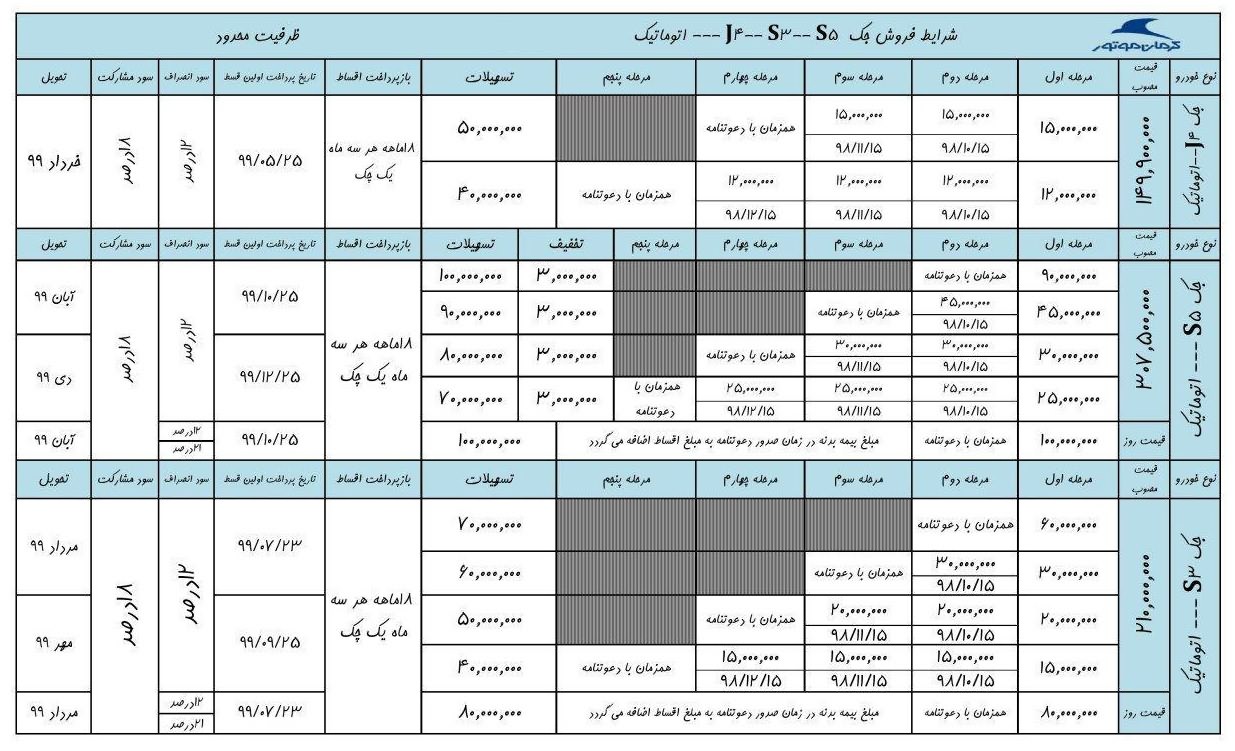 کرمان موتور
شرایط فروش جک J۴--S۳--S۵ --- اتوماتیک
ظرفیت محدود
نوع خودرو قیمت مصوب مرحله اول مرحله دوم مرحله سوم مرحله چهارم مرحله پنجم تسهیلات بازپرداخت اقساط تاریخ پرداخت اولین قسط سود انصراف سود مشارکت تحویل
جک J۴--اتوماتیک
۱۴۹,۹۰۰,۰۰۰
۱۵,۰۰۰,۰۰۰ ۱۵,۰۰۰,۰۰۰ ۱۵,۰۰۰,۰۰۰ همزمان با دعوتنامه ۵۰,۰۰۰,۰۰۰
۹۸/۱۰/۱۵ ۹۸/۱۱/۱۵
۱۲,۰۰۰,۰۰۰ ۱۲,۰۰۰,۰۰۰ ۱۲,۰۰۰,۰۰۰ ۱۲,۰۰۰,۰۰۰ همزمان با دعوتنامه ۴۰,۰۰۰,۰۰۰
۹۸/۱۰/۱۵ ۹۸/۱۱/۱۵ ۹۸/۱۲/۱۵
۱۸ماهه هر سه ماه
یک چک
۹۹/۰۵/۲۵
۱۲درصد
۱۸درصد
خرداد ۹۹
نوع خودرو قیمت مصوب مرحله اول مرحله دوم مرحله سوم مرحله چهارم مرحله پنجم تخفیف تسهیلات بازپرداخت اقساط تاریخ پرداخت اولین قسط سود انصراف سود مشارکت تحویل
جک S۵ --- اتوماتیک
۳۰۷,۵۰۰,۰۰۰
۹۰,۰۰۰,۰۰۰ همزمان با دعوتنامه ۳,۰۰۰,۰۰۰ ۱۰۰,۰۰۰,۰۰۰
۴۵,۰۰۰,۰۰۰ ۴۵,۰۰۰,۰۰۰ همزمان با دعوتنامه ۳,۰۰۰,۰۰۰ ۹۰,۰۰۰,۰۰۰
۹۸/۱۰/۱۵
۳۰,۰۰۰,۰۰۰ ۳۰,۰۰۰,۰۰۰ ۳۰,۰۰۰,۰۰۰ همزمان با دعوتنامه ۳,۰۰۰,۰۰۰ ۸۰,۰۰۰,۰۰۰
۹۸/۱۰/۱۵ ۹۸/۱۱/۱۵
۲۵,۰۰۰,۰۰۰ ۲۵,۰۰۰,۰۰۰ ۲۵,۰۰۰,۰۰۰ ۲۵,۰۰۰,۰۰۰ همزمان با دعوتنامه ۳,۰۰۰,۰۰۰ ۷۰,۰۰۰,۰۰۰
۹۸/۱۰/۱۵ ۹۸/۱۱/۱۵ ۹۸/۱۲/۱۵
۱۸ماهه هر سه
ماه یک چک
۹۹/۱۰/۲۵
۹۹/۱۲/۲۵
۱۲درصد
۱۸درصد
آبان ۹۹
دی ۹۹
قیمت روز ۱۰۰,۰۰۰,۰۰۰ همزمان با دعوتنامه مبلغ بیمه بدنه در زمان صدور دعوتنامه به مبلغ اقساط اضافه می گردد ۱۰۰,۰۰۰,۰۰۰ ۹۹/۱۰/۲۵ ۱۲درصد ۲۱درصد آبان ۹۹
نوع خودرو قیمت مصوب مرحله اول مرحله دوم مرحله سوم مرحله چهارم مرحله پنجم تسهیلات بازپرداخت اقساط تاریخ پرداخت اولین قسط سود انصراف سود مشارکت تحویل
جک S۳ --- اتوماتیک
۲۱۰,۰۰۰,۰۰۰
۶۰,۰۰۰,۰۰۰ همزمان با دعوتنامه ۷۰,۰۰۰,۰۰۰
۳۰,۰۰۰,۰۰۰ ۳۰,۰۰۰,۰۰۰ همزمان با دعوتنامه ۶۰,۰۰۰,۰۰۰
۹۸/۱۰/۱۵
۲۰,۰۰۰,۰۰۰ ۲۰,۰۰۰,۰۰۰ ۲۰,۰۰۰,۰۰۰ همزمان با دعوتنامه ۵۰,۰۰۰,۰۰۰
۹۸/۱۰/۱۵ ۹۸/۱۱/۱۵
۱۵,۰۰۰,۰۰۰ ۱۵,۰۰۰,۰۰۰ ۱۵,۰۰۰,۰۰۰ ۱۵,۰۰۰,۰۰۰ همزمان با دعوتنامه ۴۰,۰۰۰,۰۰۰
۹۸/۱۰/۱۵ ۹۸/۱۱/۱۵ ۹۸/۱۲/۱۵
۱۸ماهه هر سه
ماه یک چک
۹۹/۰۷/۲۳
۹۹/۰۹/۲۵
۱۲درصد
۱۸درصد
مرداد ۹۹
مهر ۹۹
قیمت روز ۸۰,۰۰۰,۰۰۰ همزمان با دعوتنامه مبلغ بیمه بدنه در زمان صدور دعوتنامه به مبلغ اقساط اضافه می گردد ۸۰,۰۰۰,۰۰۰ ۹۹/۰۷/۲۳ ۱۲درصد ۲۱درصد مرداد ۹۹